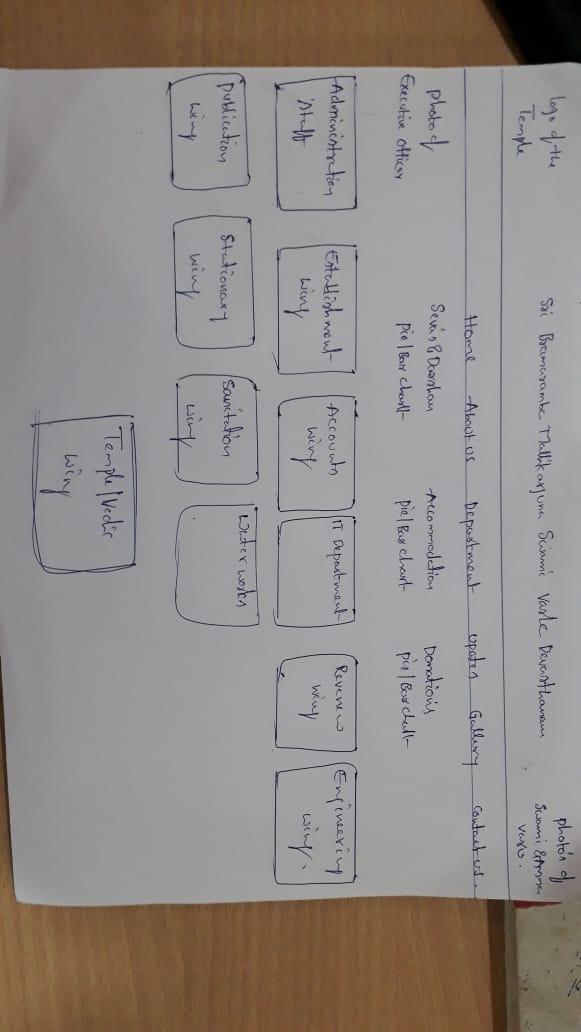 logo of the
Temple
Sri Bramaramba Mallikarjuna Swami Varla Devasthanam
photo's of
Swami & Amma
varu.
Home About us Department Updates Gallery Contact us.
photo of
Executive officer
Sevas & Darshan
pie/Bar chart
Accommodation
pie/Bar chart
Donations
pie/Bar chart
Administration
Staff
Establishment
wing
Accounts
wing
IT Department
Revenew
wing
Engineering
wing.
publication
wing
Stationary
wing
Sanitation
wing
Water works
Temple/Vedic
wing